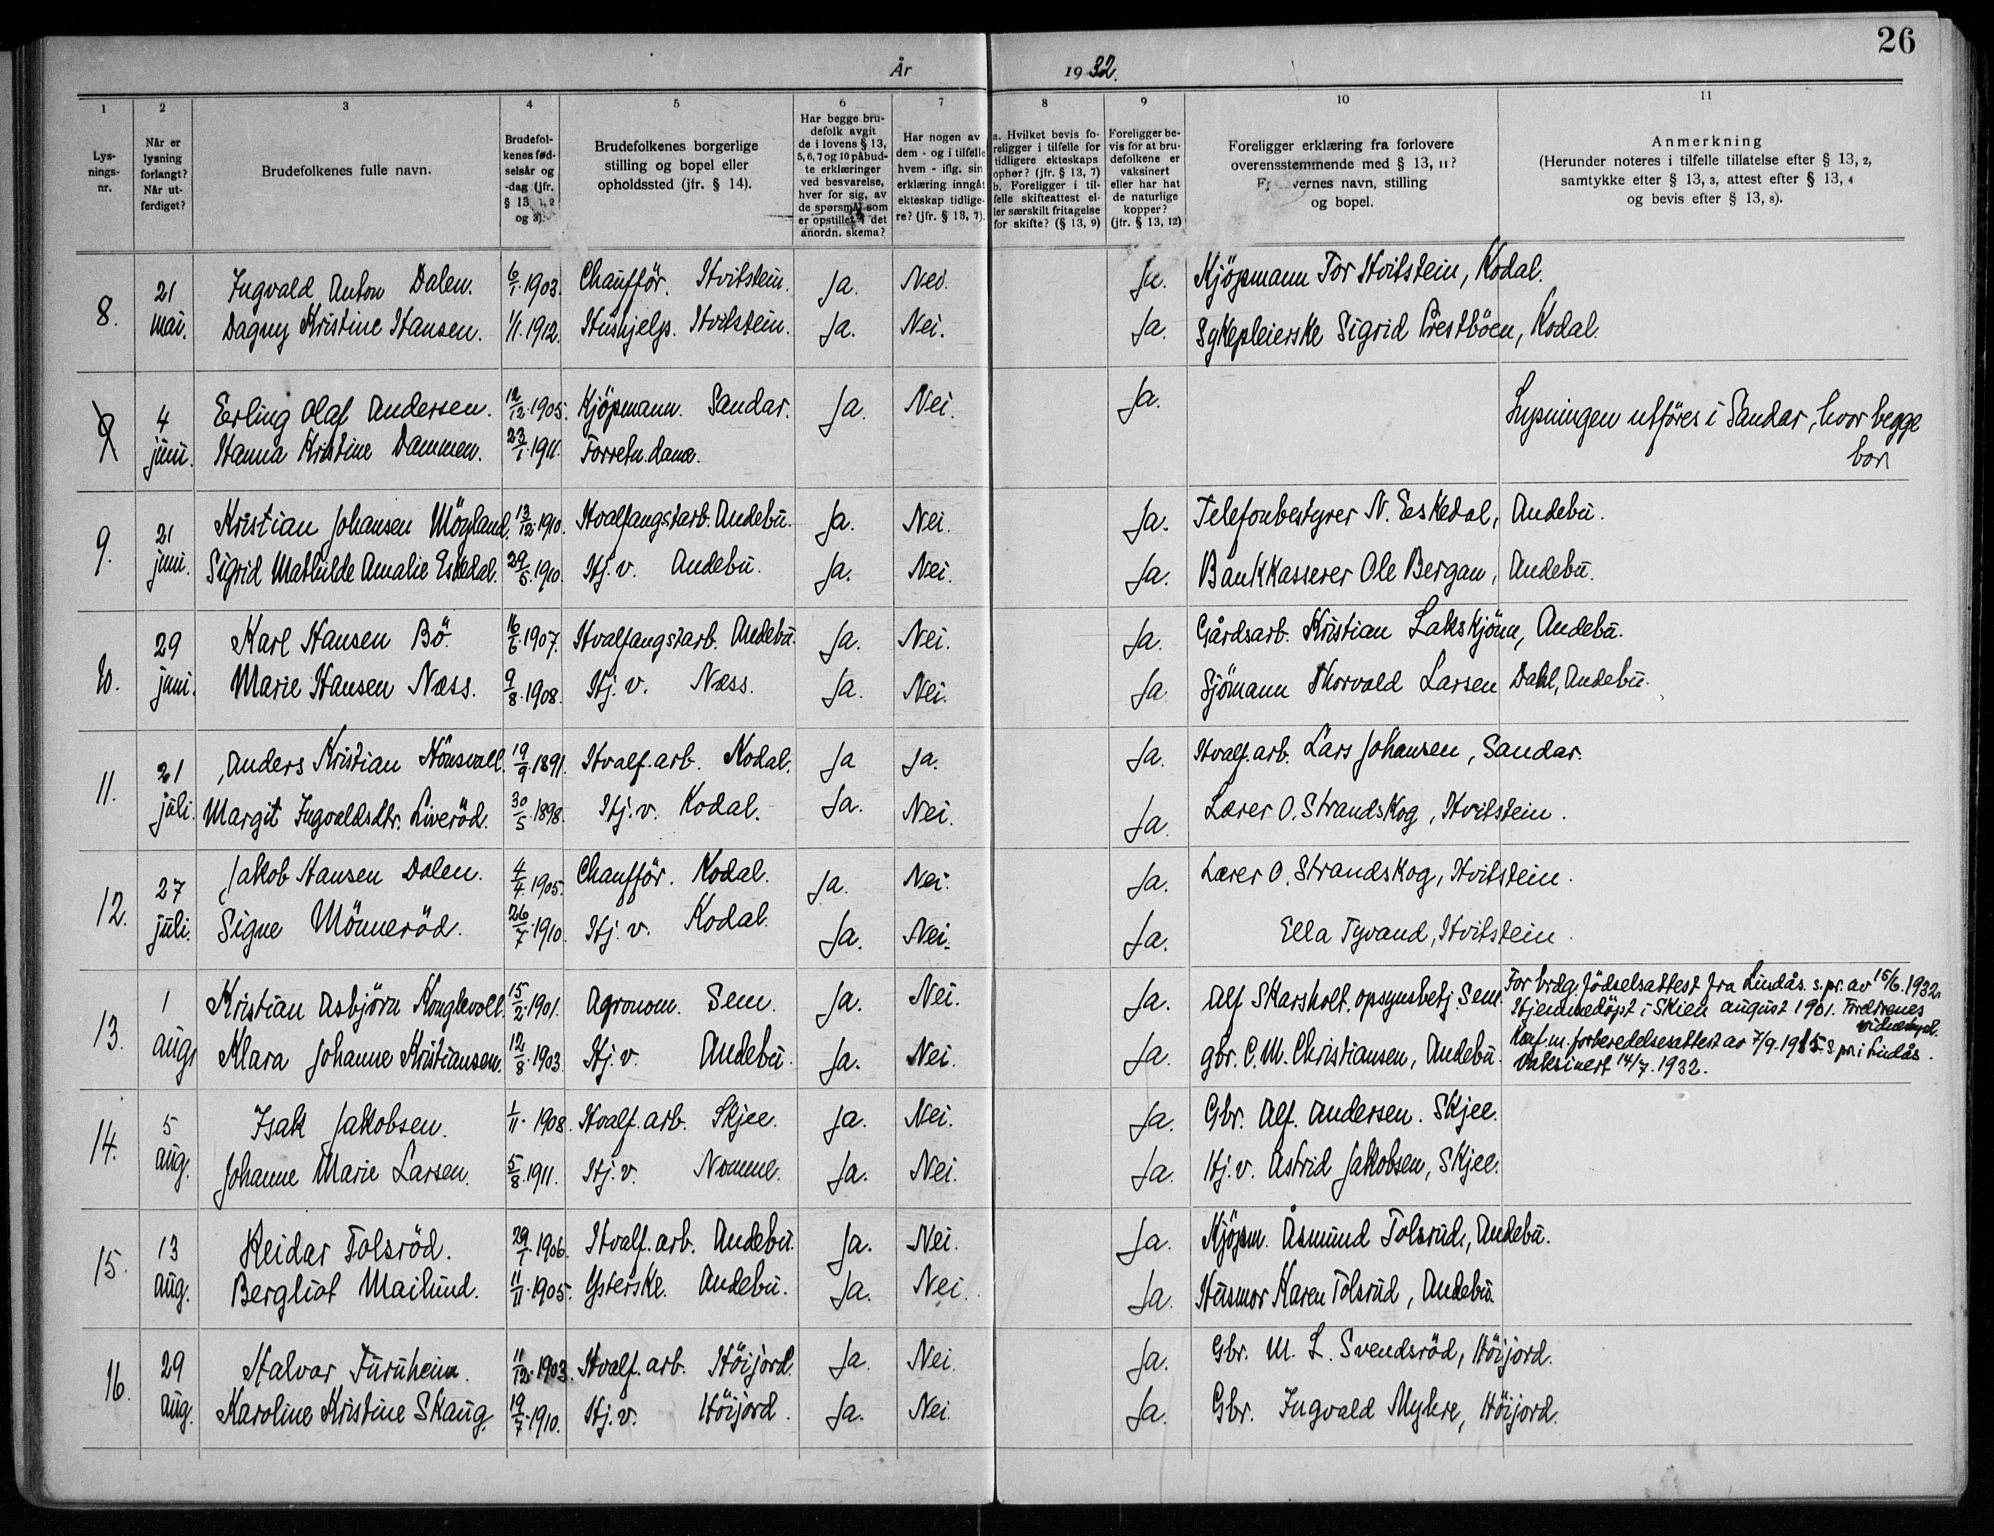 26
År 1932.
1 2 3 4 5 6 7 8 9 10 11
Lys-
nings-
nr.
Når er
lysning
forlangt?
Når ut-
ferdiget?
Brudefolkenes fulle navn.
Brudefol-
kenes fød-
selsår og
-dag (jfr.
§ 13, 1, 2
og 3).
Brudefolkenes borgerlige
stilling og bopel eller
opholdssted (jfr. § 14).
Har begge bru-
defolk avgit
de i lovens § 13,
5, 6, 7 og 10 påbud-
te erklæringer
ved besvarelse,
hver for sig, av
de spørsmål som
er opstillet i det
anordn. skema?
Har nogen av
dem - og i tilfelle
hvem - iflg. sin
erklæring inngåt
ekteskap tidlige-
re? (jfr. § 13, 7).
a. Hvilket bevis fo-
religger i tilfelle for
tidligere ekteskaps
ophør? (jfr. § 13, 7)
b. Foreligger i til-
felle skifteattest el-
ler særskilt fritagelse
for skifte? (§ 13, 9)
Foreligger be-
vis for at bru-
defolkene er
vaksinert
eller har hat
de naturlige
kopper?
(jfr. § 13, 12)
Foreligger erklæring fra forlovere
overensstemmende med § 13, 11?
Forlovernes navn, stilling
og bopel.
Anmerkning
(Herunder noteres i tilfelle tillatelse efter § 13, 2,
samtykke efter § 13, 3, attest efter § 13, 4
og bevis efter § 13, 8).
8. 21 mai. Ingvald Anton Dalen. 6/1.1903. Chaufför. Hvitstein. Ja. Nei. Ja. Kjöpmann Tor Hvitstein, Kodal.
Dagny Kristine Hansen. 1/1.1912. Hushjelp. Hvitstein. Ja. Nei. Ja. Sykepleierske Sigrid Prestböen, Kodal.
9 4 juni. Erling Olaf Andersen. 12/12.1905. Kjöpmann. Sandar. Ja. Nei. Ja. Lysningen utföres i Sandar, hvor begge
Hanna Kristine Dammen. 23/1.1911. Forretn.dame. bor
9. 21 juni. Kristian Johansen Möyland. 13/12.1910. Hvalfangstarb. Andebu. Ja. Nei. Ja. Telefonbestyrer N. Eskedal, Andebu.
Sigrid Mathilde Amalie Eskedal. 29/5.1910. Hj.v. Andebu. Ja. Nei. Ja. Bankkasserer Ole Bergan, Andebu.
10. 29 juni. Karl Hansen Bö. 16/6.1907. Hvalfangstarb. Andebu. Ja. Nei. Ja. Gårdsarb. Kristian Lakskjönn, Andebu.
Marie Hansen Næss. 9/8.1908. Hj.v. Næss. Ja. Nei. Ja Sjömann Thorvald Larsen Dahl, Andebu.
11. 21 juli. Anders Kristian Hönsvall. 19/9.1891. Hvalf.arb. Kodal. Ja Ja. Ja. Hvalf.arb. Lars Johansen, Sandar.
Margit Ingvaldsdtr. Liveröd. 30/5.1898. Hj.v. Kodal. Ja. Nei. Ja Lærer O. Strandskog, Hvitstein.
12. 27 juli. Jakob Hansen Dalen. 4/4.1905. Chaufför. Kodal. Ja. Nei. Ja. Lærer O. Strandskog, Hvitstein.
Signe Mönneröd. 26/7.1910. Hj.v. Kodal. Ja. Nei. Ja. Ella Tyvand, Hvitstein.
13. 1 aug. Kristian Asbjörn Konglevoll. 15/2.1901. Agronom. Sem. Ja. Nei. Ja. Alf Skarsholt. opsynsbetj. Sem. For brdg. födselsattest fra Lindås s.pr. av 15/6.1932.
Hjemmedöpt i Skien august 1901. Foreldrenes
vidnesbyrd.
Klara Johanne Kristiansen. 12/8.1903. Hj.v. Andebu. Ja. Nei. Ja. gbr. C.M. Christiansen, Andebu. Konf.m.forberedelsesattest av 7/9.1915. s.pr. i Lindås.
Vaksinert 14/7.1932.
14. 5 aug. Isak Jakobsen. 1/11.1908. Hvalf.arb. Skjee. Ja. Nei. Ja. Gbr. Alf. Andersen. Skjee.
Johanne Marie Larsen. 5/8.1911. Hj.v. Nomme. Ja. Nei. Ja. Hj.v. Astrid Jakobsen, Skjee.
15. 13 aug. Reidar Tolsröd. 29/1.1906. Hvalf.arb. Andebu. Ja. Nei. Ja. Kjöpm. Åsmund Tolsrud, Andebu.
Bergliot Mailund. 11/11.1905. Ysterske. Andebu. Ja. Nei. Ja. Husmor Karen Tolsrud, Andebu.
16. 29 aug. Halvar Furuheim. 11/12.1903. Hvalf.arb. Höijord. Ja. Nei. Ja. Gbr. M. L. Svendsröd, Höijord.
Karoline Kristine Skaug. 19/7.1910. Hj.v. Höijord. Ja. Nei. Ja. Gbr. Ingvald Myhre, Höijord.